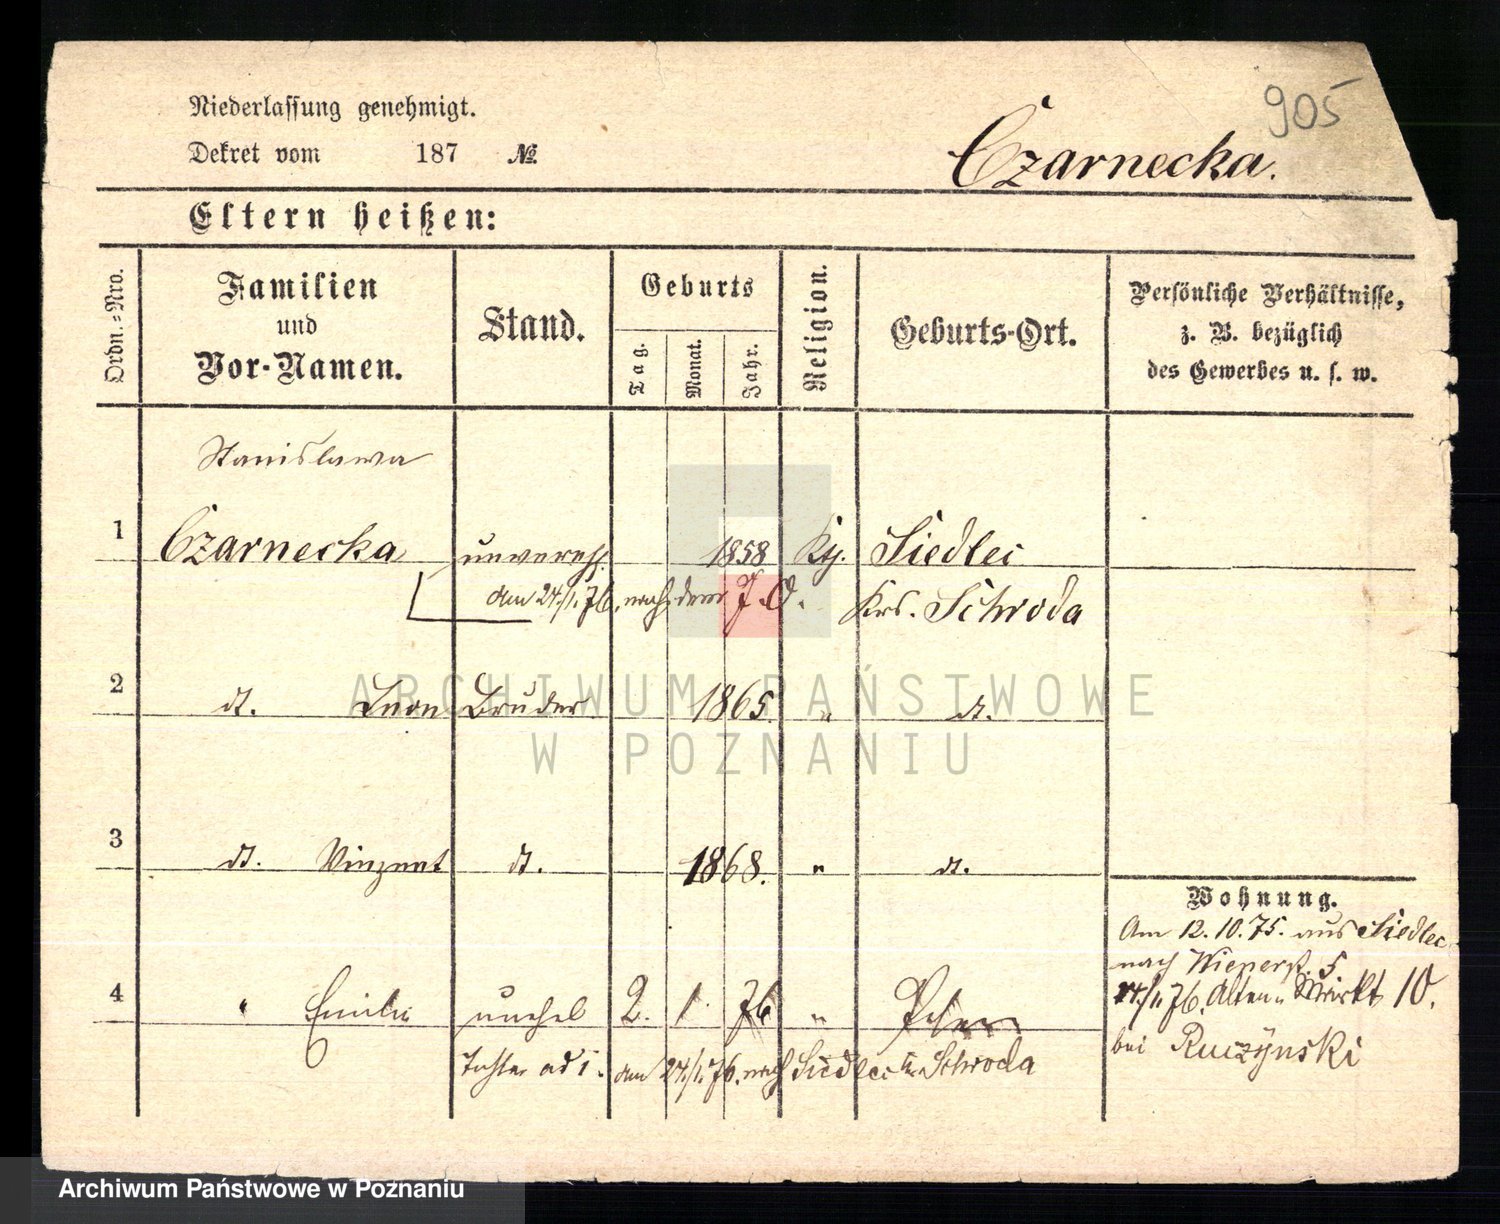 905
Niederlassung genehmigt.
Dekret vom 187 №
Czarnecka.
Eltern heißen:
Ordn.-Nro.
Familien und Vor-Namen.
Stand.
Geburts
Tag.
Monat.
Jahr.
Religion.
Geburts-Ort.
Persönliche Verhältnisse,
z. B. bezüglich
des Gewerbes u. s. w.
Stanislawa
1 Czarnecka unvereh. 1858 Siedlec
am 24./1. 76. nach dem J. O. Krs. Schroda
2 dt. Leon Bruder 1865 " dt.
3 dt. Vinzent dt. 1868. " dt.
Wohnung.
Am 12. 10. 75. aus Siedlec
nach Wienerst. 5.
4 " Emilie unehel 2. 1. 76 " Posen
24./1. 76. Alten Markt 10.
bei Ruczynski
Tochter ad 1. am 24./1. 76. nach Siedlec Kr. Schroda
ARCHIWUM PAŃSTWOWE
W POZNANIU
Archiwum Państwowe w Poznaniu